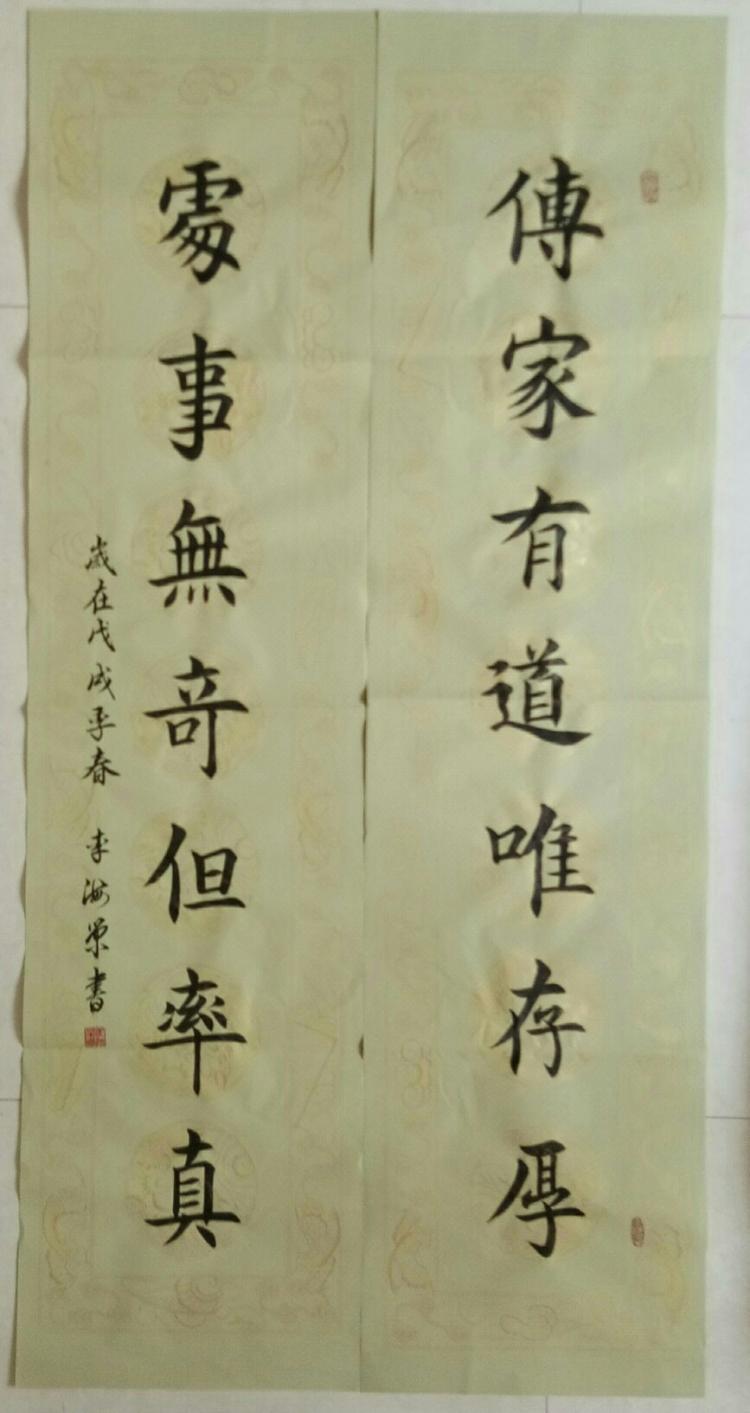 傳家有道唯存厚
處事無奇但率真
歲在戊戌季春 李海榮書